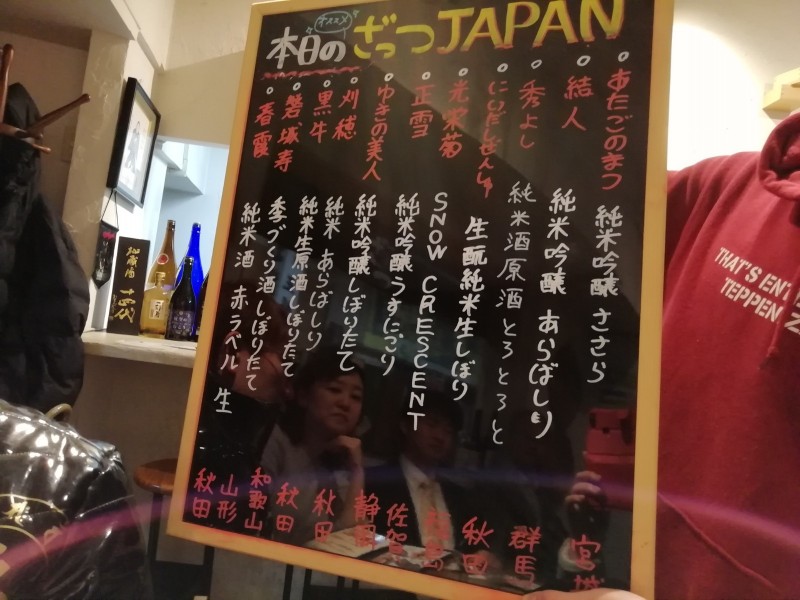 本日の オススメ ざっつJAPAN
あたごのまつ 純米吟醸 ささら 宮城
結人 純米吟醸 あらばしり 群馬
秀よし 純米酒原酒とろとろと 秋田
にいだしぜんしゅ 生酛純米生しぼり 福島
光栄菊 SNOW CRESCENT 佐賀
正雪 純米吟醸うすにごり 静岡
ゆきの美人 純米吟醸しぼりたて 秋田
刈穂 純米 あらばしり 秋田
黒牛 純米生原酒しぼりたて 和歌山
磐城寿 季づくり酒しぼりたて 山形
春霞 純米酒 赤ラベル 生 秋田
十四代
THAT'S
TEPPEN